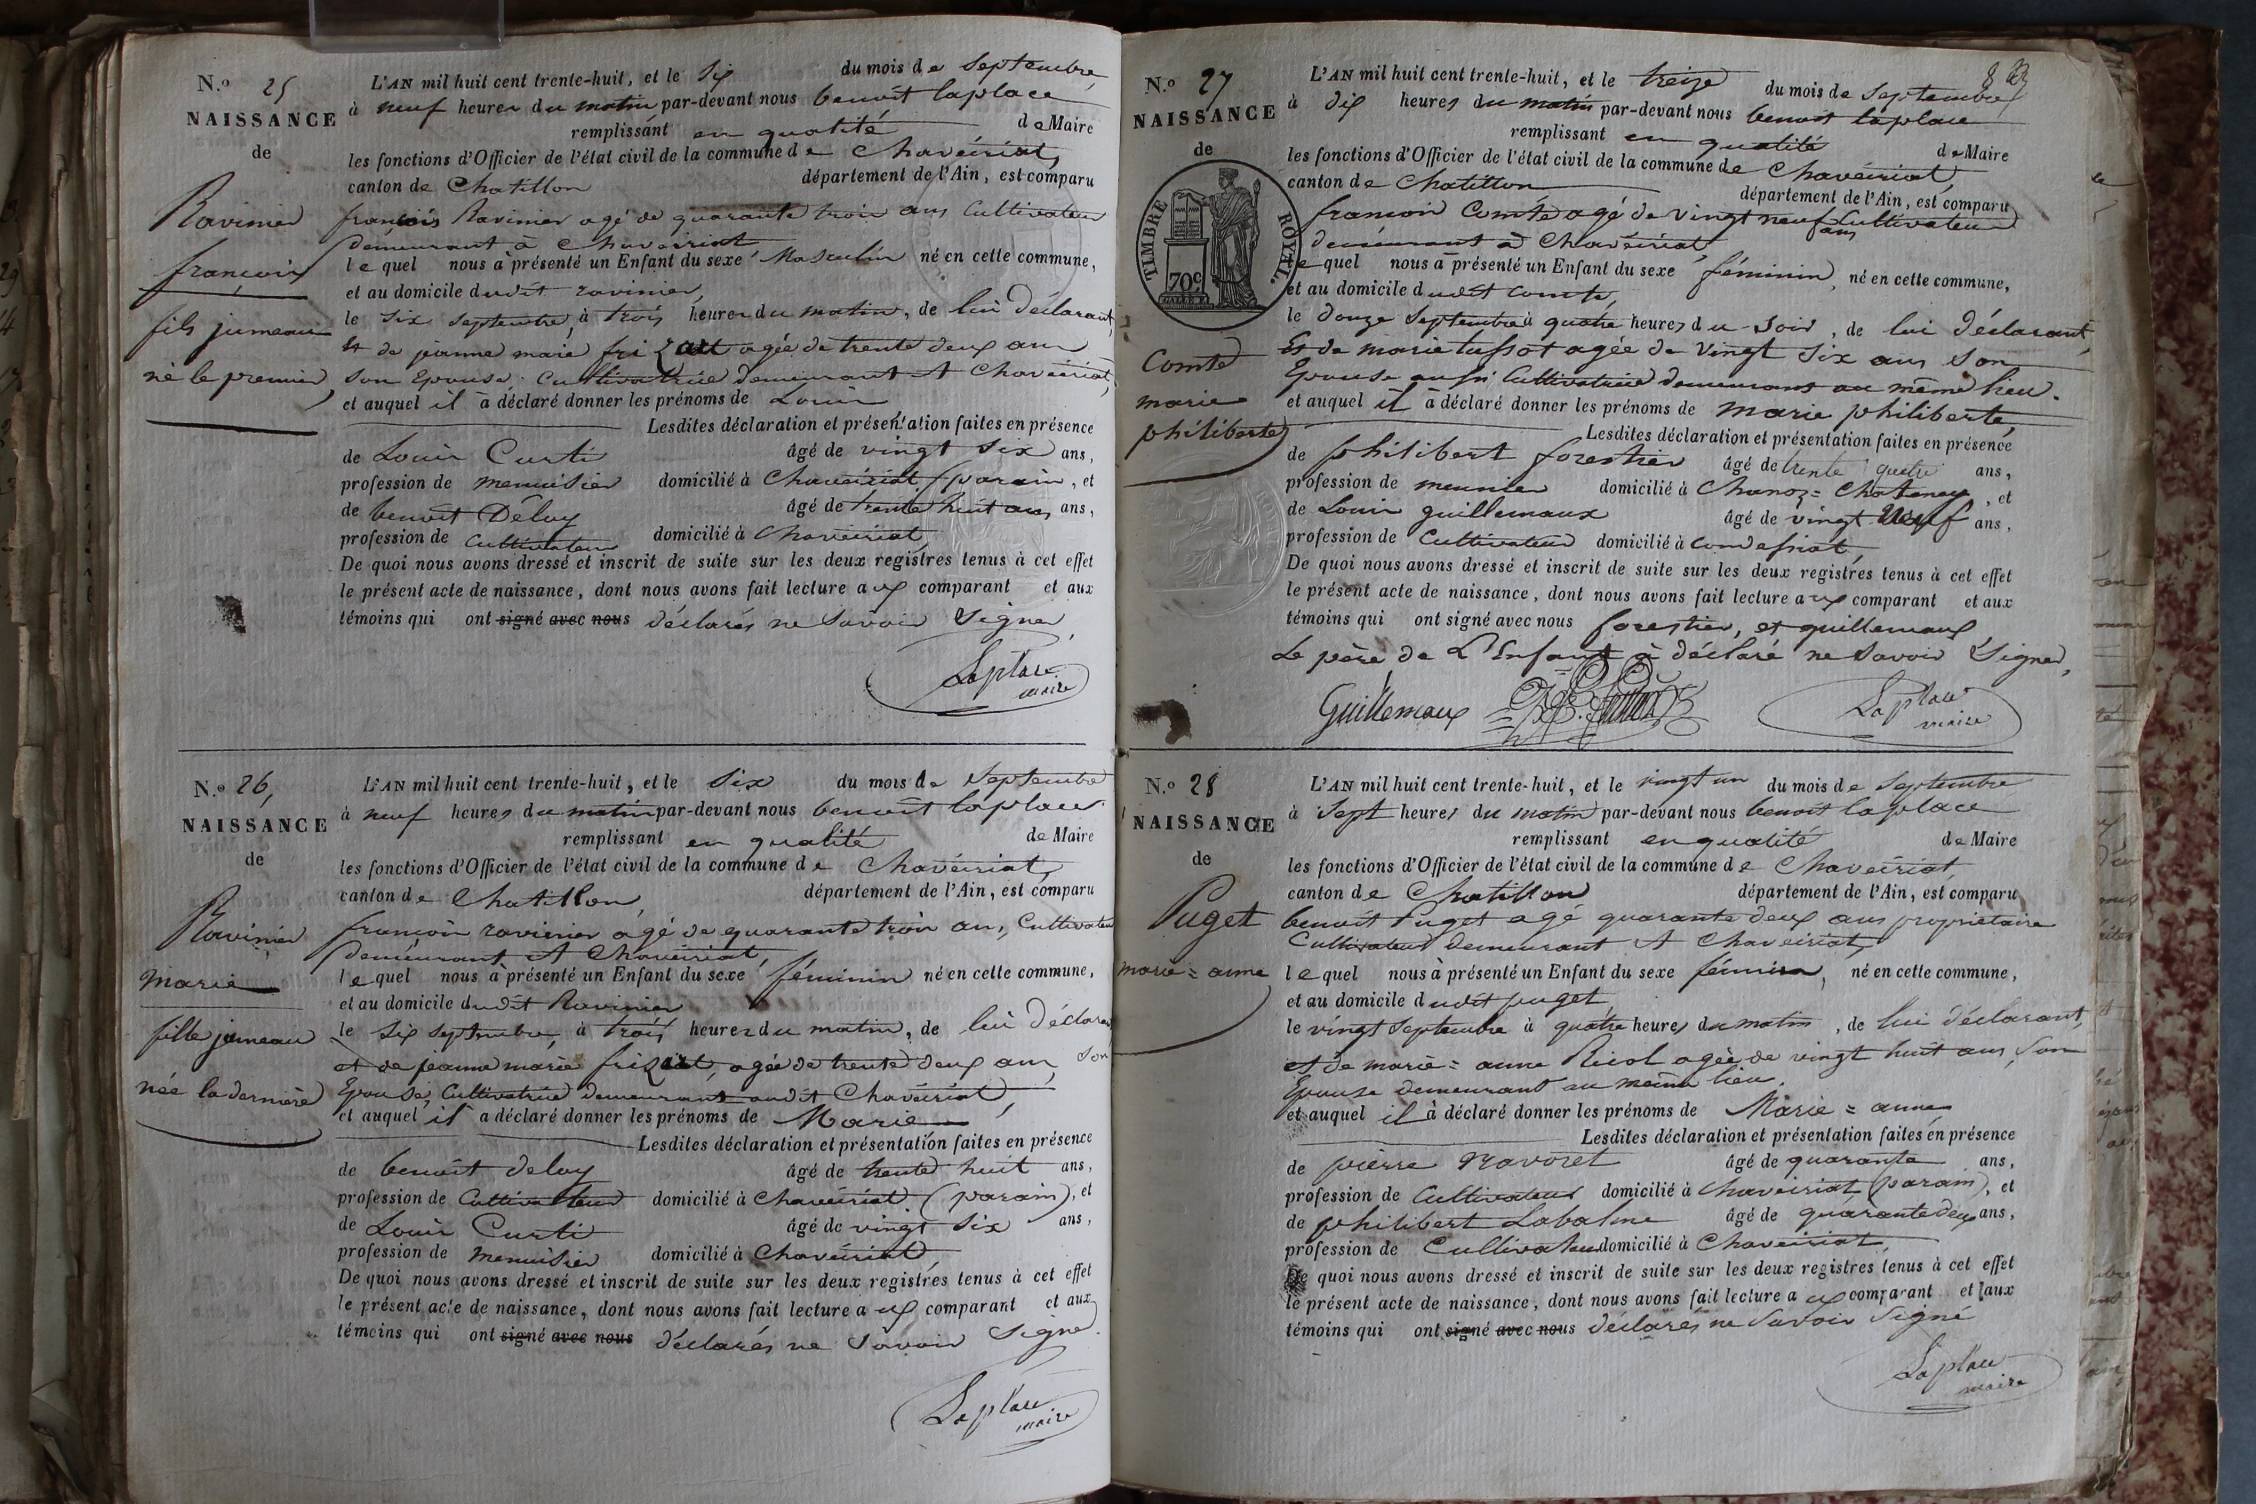 N.o 25
NAISSANCE
de
Ravinier
françois
fils jumeau
né le premier
L'AN mil huit cent trente-huit, et le Six du mois de Septembre
à neuf heures du matin par-devant nous benoit laplace
remplissant en qualité de Maire
les fonctions d'Officier de l'état civil de la commune de Chaveiriat,
canton de Chatillon département de l'Ain, est comparu
françois Ravinier agé de quarante trois ans Cultivateur
demeurant à Chaveiriat
lequel nous à présenté un Enfant du sexe Masculin né en cette commune,
et au domicile dudit ravinier,
le Six Septembre, à trois heures du matin, de lui déclarant,
Et de jeanne marie frizat agée de trente deux ans
son Epouse Cultivatrice demeurant A Chaveiriat,
et auquel il à déclaré donner les prénoms de Louis
Lesdites déclaration et présentation faites en présence
de Louis Curti âgé de vingt six ans,
profession de menuisier domicilié à Chaveiriat (parain, et
de benoit Déluy âgé de trente huit ans, ans,
profession de Cultivateur domicilié à Chaveiriat,
De quoi nous avons dressé et inscrit de suite sur les deux registres tenus à cet effet
le présent acte de naissance, dont nous avons fait lecture aux comparant et aux
témoins qui ont signé avec nous déclarés ne Savoir Signer,
Laplace
maire
N.o 26,
NAISSANCE
de
Ravinier
marie
fille jumeau
née la dernière
L'AN mil huit cent trente-huit, et le Six du mois de Septembre
à neuf heures du matin par-devant nous benoit laplace
remplissant en qualité de Maire
les fonctions d'Officier de l'état civil de la commune de Chaveiriat,
canton de Chatillon, département de l'Ain, est comparu
françois ravinier agé de quarante trois ans, Cultivateur
demeurant A Chaveiriat,
lequel nous à présenté un Enfant du sexe féminin né en cette commune,
et au domicile dudit Ravinier
le Six septembre, à trois heures du matin, de lui déclarant
et de jeanne marie frizat, agée de trente deux ans, son
Epouse, Cultivatrice demeurant audit Chaveiriat,
et auquel il a déclaré donner les prénoms de Marie
Lesdites déclaration et présentation faites en présence
de benoit deluy âgé de trente huit ans,
profession de Cultivateur domicilié à Chaveiriat (parain), et
de Louis Curti âgé de vingt six ans,
profession de menuisier domicilié à Chaveiriat
De quoi nous avons dressé et inscrit de suite sur les deux registres tenus à cet effet
le présent acte de naissance, dont nous avons fait lecture aux comparant et aux
témoins qui ont signé avec nous déclarés ne Savoir Signer.
Laplace
maire
8
N.o 27
NAISSANCE
de
TIMBRE ROYAL.
70c
Comte
marie
philiberte
L'AN mil huit cent trente-huit, et le treize du mois de Septembre
à dix heures du matin par-devant nous benoit laplace
remplissant en qualité de Maire
les fonctions d'Officier de l'état civil de la commune de Chaveiriat,
canton de Chatillon département de l'Ain, est comparu
françois Comte agé de vingt neuf ans Cultivateur
demeurant à Chaveiriat
lequel nous à présenté un Enfant du sexe féminin, né en cette commune,
et au domicile dudit Comte,
le Douze Septembre à quatre heures du Soir, de lui déclarant,
Et de marie tussot agée de Vingt Six ans Son
Epouse aussi Cultivatrice demeurans au même lieu.
et auquel il à déclaré donner les prénoms de marie philiberte,
Lesdites déclaration et présentation faites en présence
de philibert forestier âgé de trente quatre ans,
profession de meunier domicilié à Chanoz=Chatenay, et
de Louis guillemaux âgé de vingt neuf ans,
profession de Cultivateur domicilié à Condessiat,
De quoi nous avons dressé et inscrit de suite sur les deux registres tenus à cet effet
le présent acte de naissance, dont nous avons fait lecture aux comparant et aux
témoins qui ont signé avec nous forestier, et guillemaux
Le père de L'Enfant à déclaré ne Savoir Signer,
Guillemaux
Laplace
maire
N.o 28
NAISSANCE
de
Puget
marie=anne
L'AN mil huit cent trente-huit, et le vingt un du mois de Septembre
à Sept heures du matin par-devant nous benoit laplace
remplissant en qualité de Maire
les fonctions d'Officier de l'état civil de la commune de Chaveiriat,
canton de Chatillon département de l'Ain, est comparu
benoit Puget agé quarante deux ans propriétaire
Cultivateur demeurant A Chaveiriat,
lequel nous à présenté un Enfant du sexe féminin, né en cette commune,
et au domicile dudit puget,
le vingt Septembre à quatre heures du matin, de lui déclarant,
et de marie=anne Ricol agée de vingt huit ans, Son
Epouse demeurant au même lieu.
et auquel il à déclaré donner les prénoms de Marie=anne
Lesdites déclaration et présentation faites en présence
de pierre ravoret âgé de quarante ans,
profession de Cultivateur domicilié à Chaveiriat (parain), et
de philibert Labalme âgé de quarante deux ans,
profession de Cultivateur domicilié à Chaveiriat,
De quoi nous avons dressé et inscrit de suite sur les deux registres tenus à cet effet
le présent acte de naissance, dont nous avons fait lecture aux comparant et aux
témoins qui ont signé avec nous déclarés ne Savoir Signé
Laplace
maire